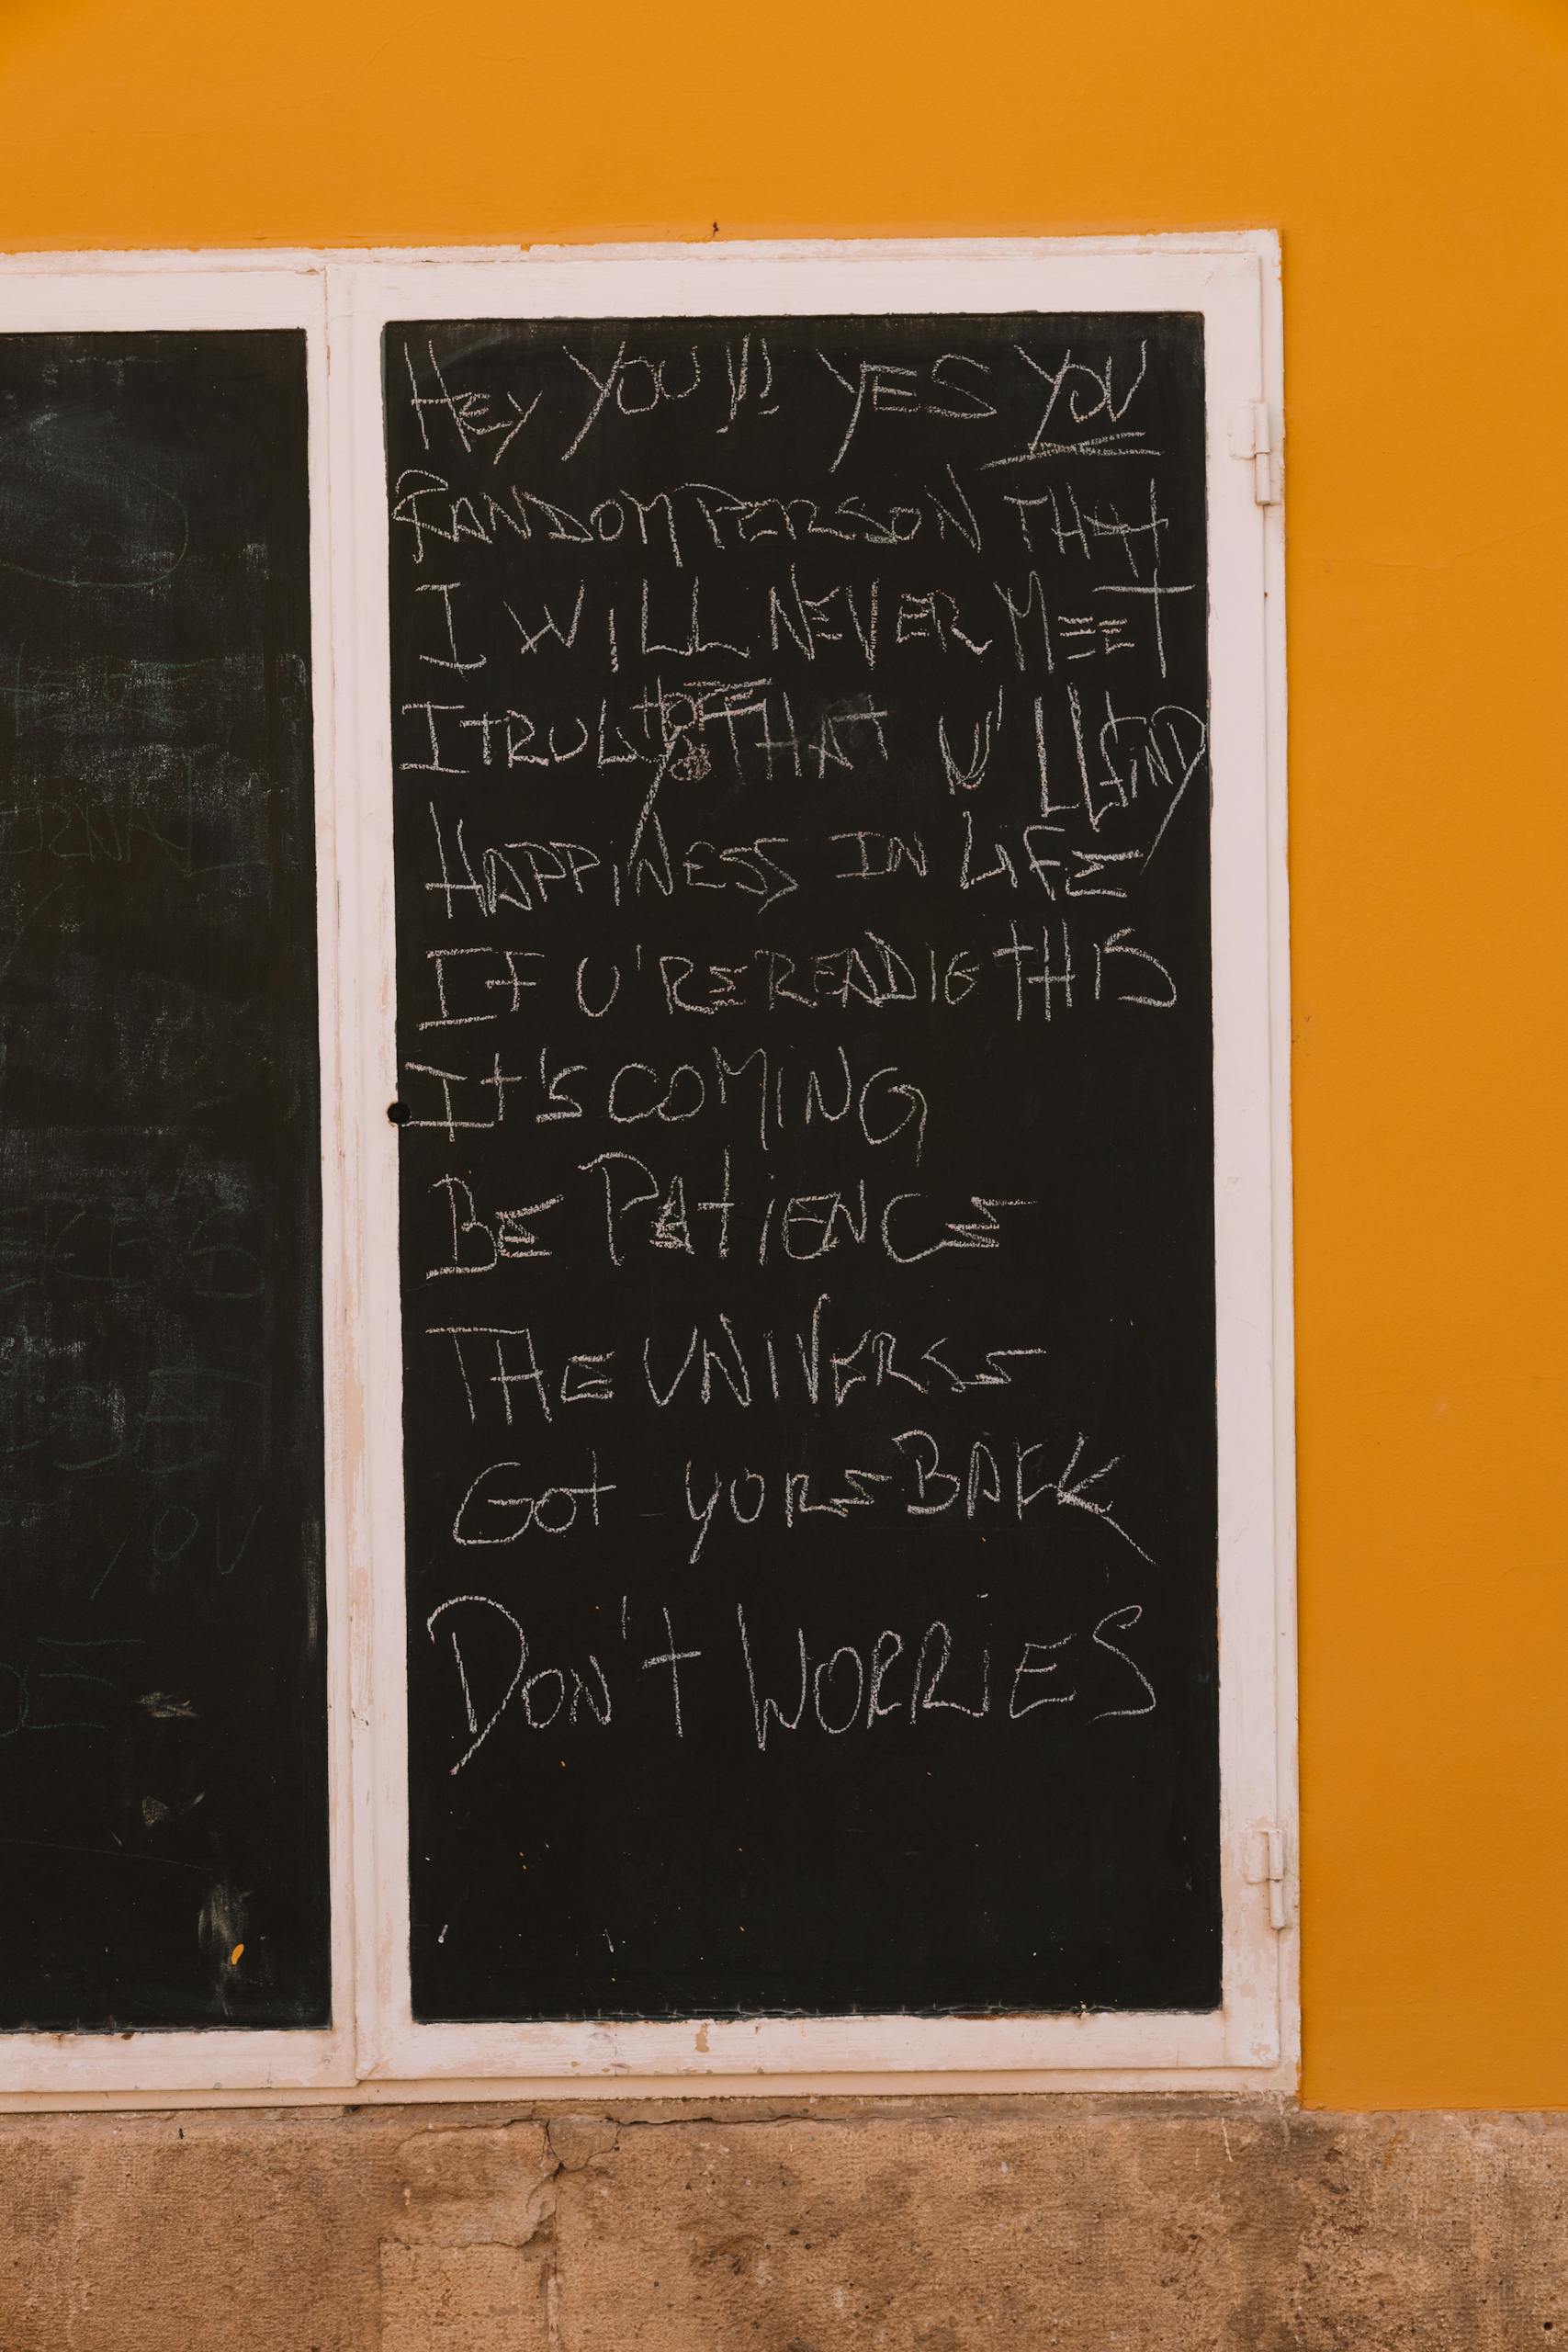 Hey YOU!!! YES YOU
RANDOM PERSON THAT
I WILL NEVER MEET
I TRULY HOPE THAT U'LL FIND
HAPPINESS IN LIFE
IF U'RE READIG THIS
It's COMING
BE PATIENCE
THE UNIVERSE
Got YORE BACK
DON'T WORRIES